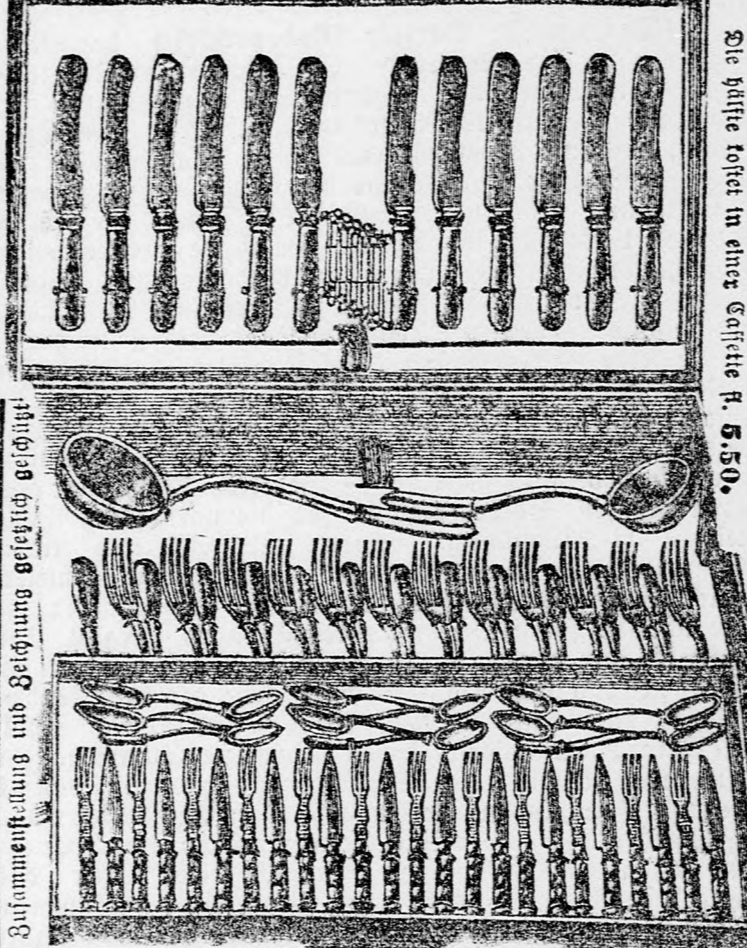 Die Hälfte kostet in einer Cassette fl. 5.50.
Zusammenstellung und Zeichnung gesetzlich geschützt!